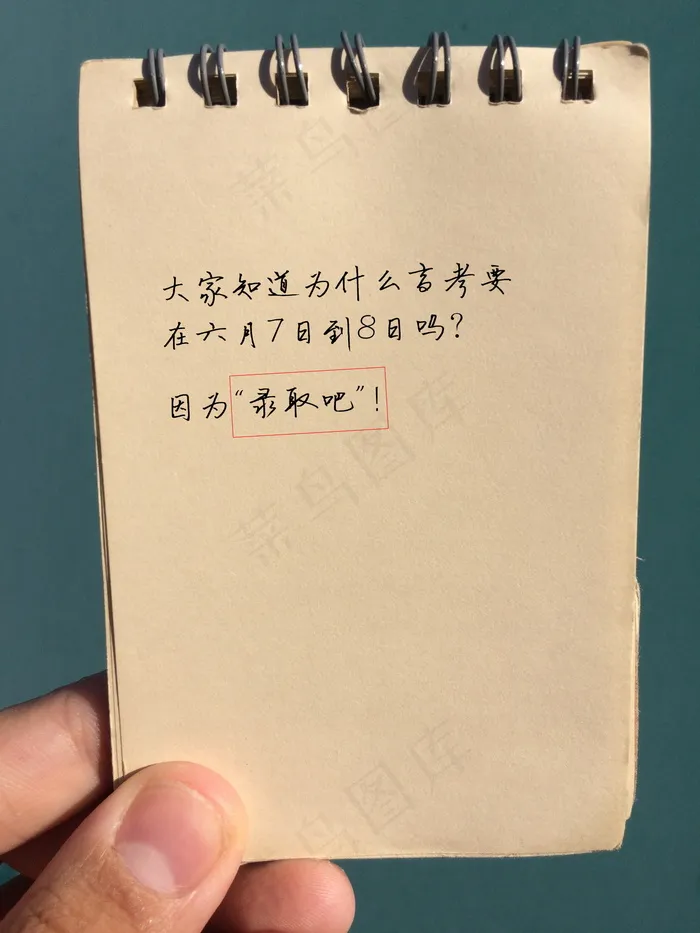 大家知道为什么高考要
在六月7日到8日吗？
因为“录取吧”！
菜鸟图库
菜鸟图库
菜鸟图库